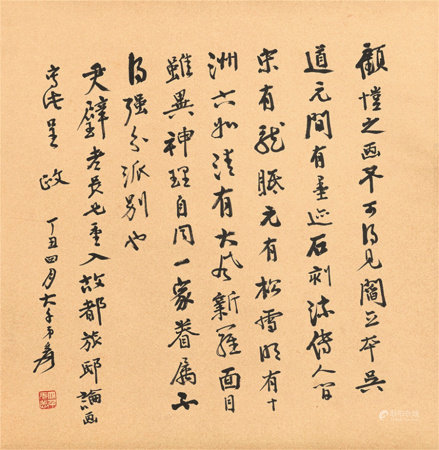 顧愷之画不可得見閻立本吳
道元間有墨迹石刻流傳人間
宋有龍眠元有松雪明有十
洲六如清有大風新羅面目
雖異神理自同一家眷屬不
得强分派別也
尹璧老長兄重入故都旅邸論画
此呈政 丁丑四月大千弟爰